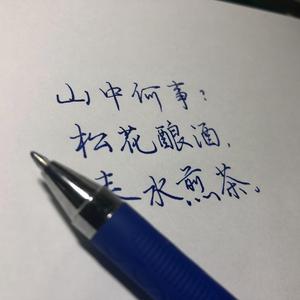 山中何事？
松花酿酒，
水煎茶。